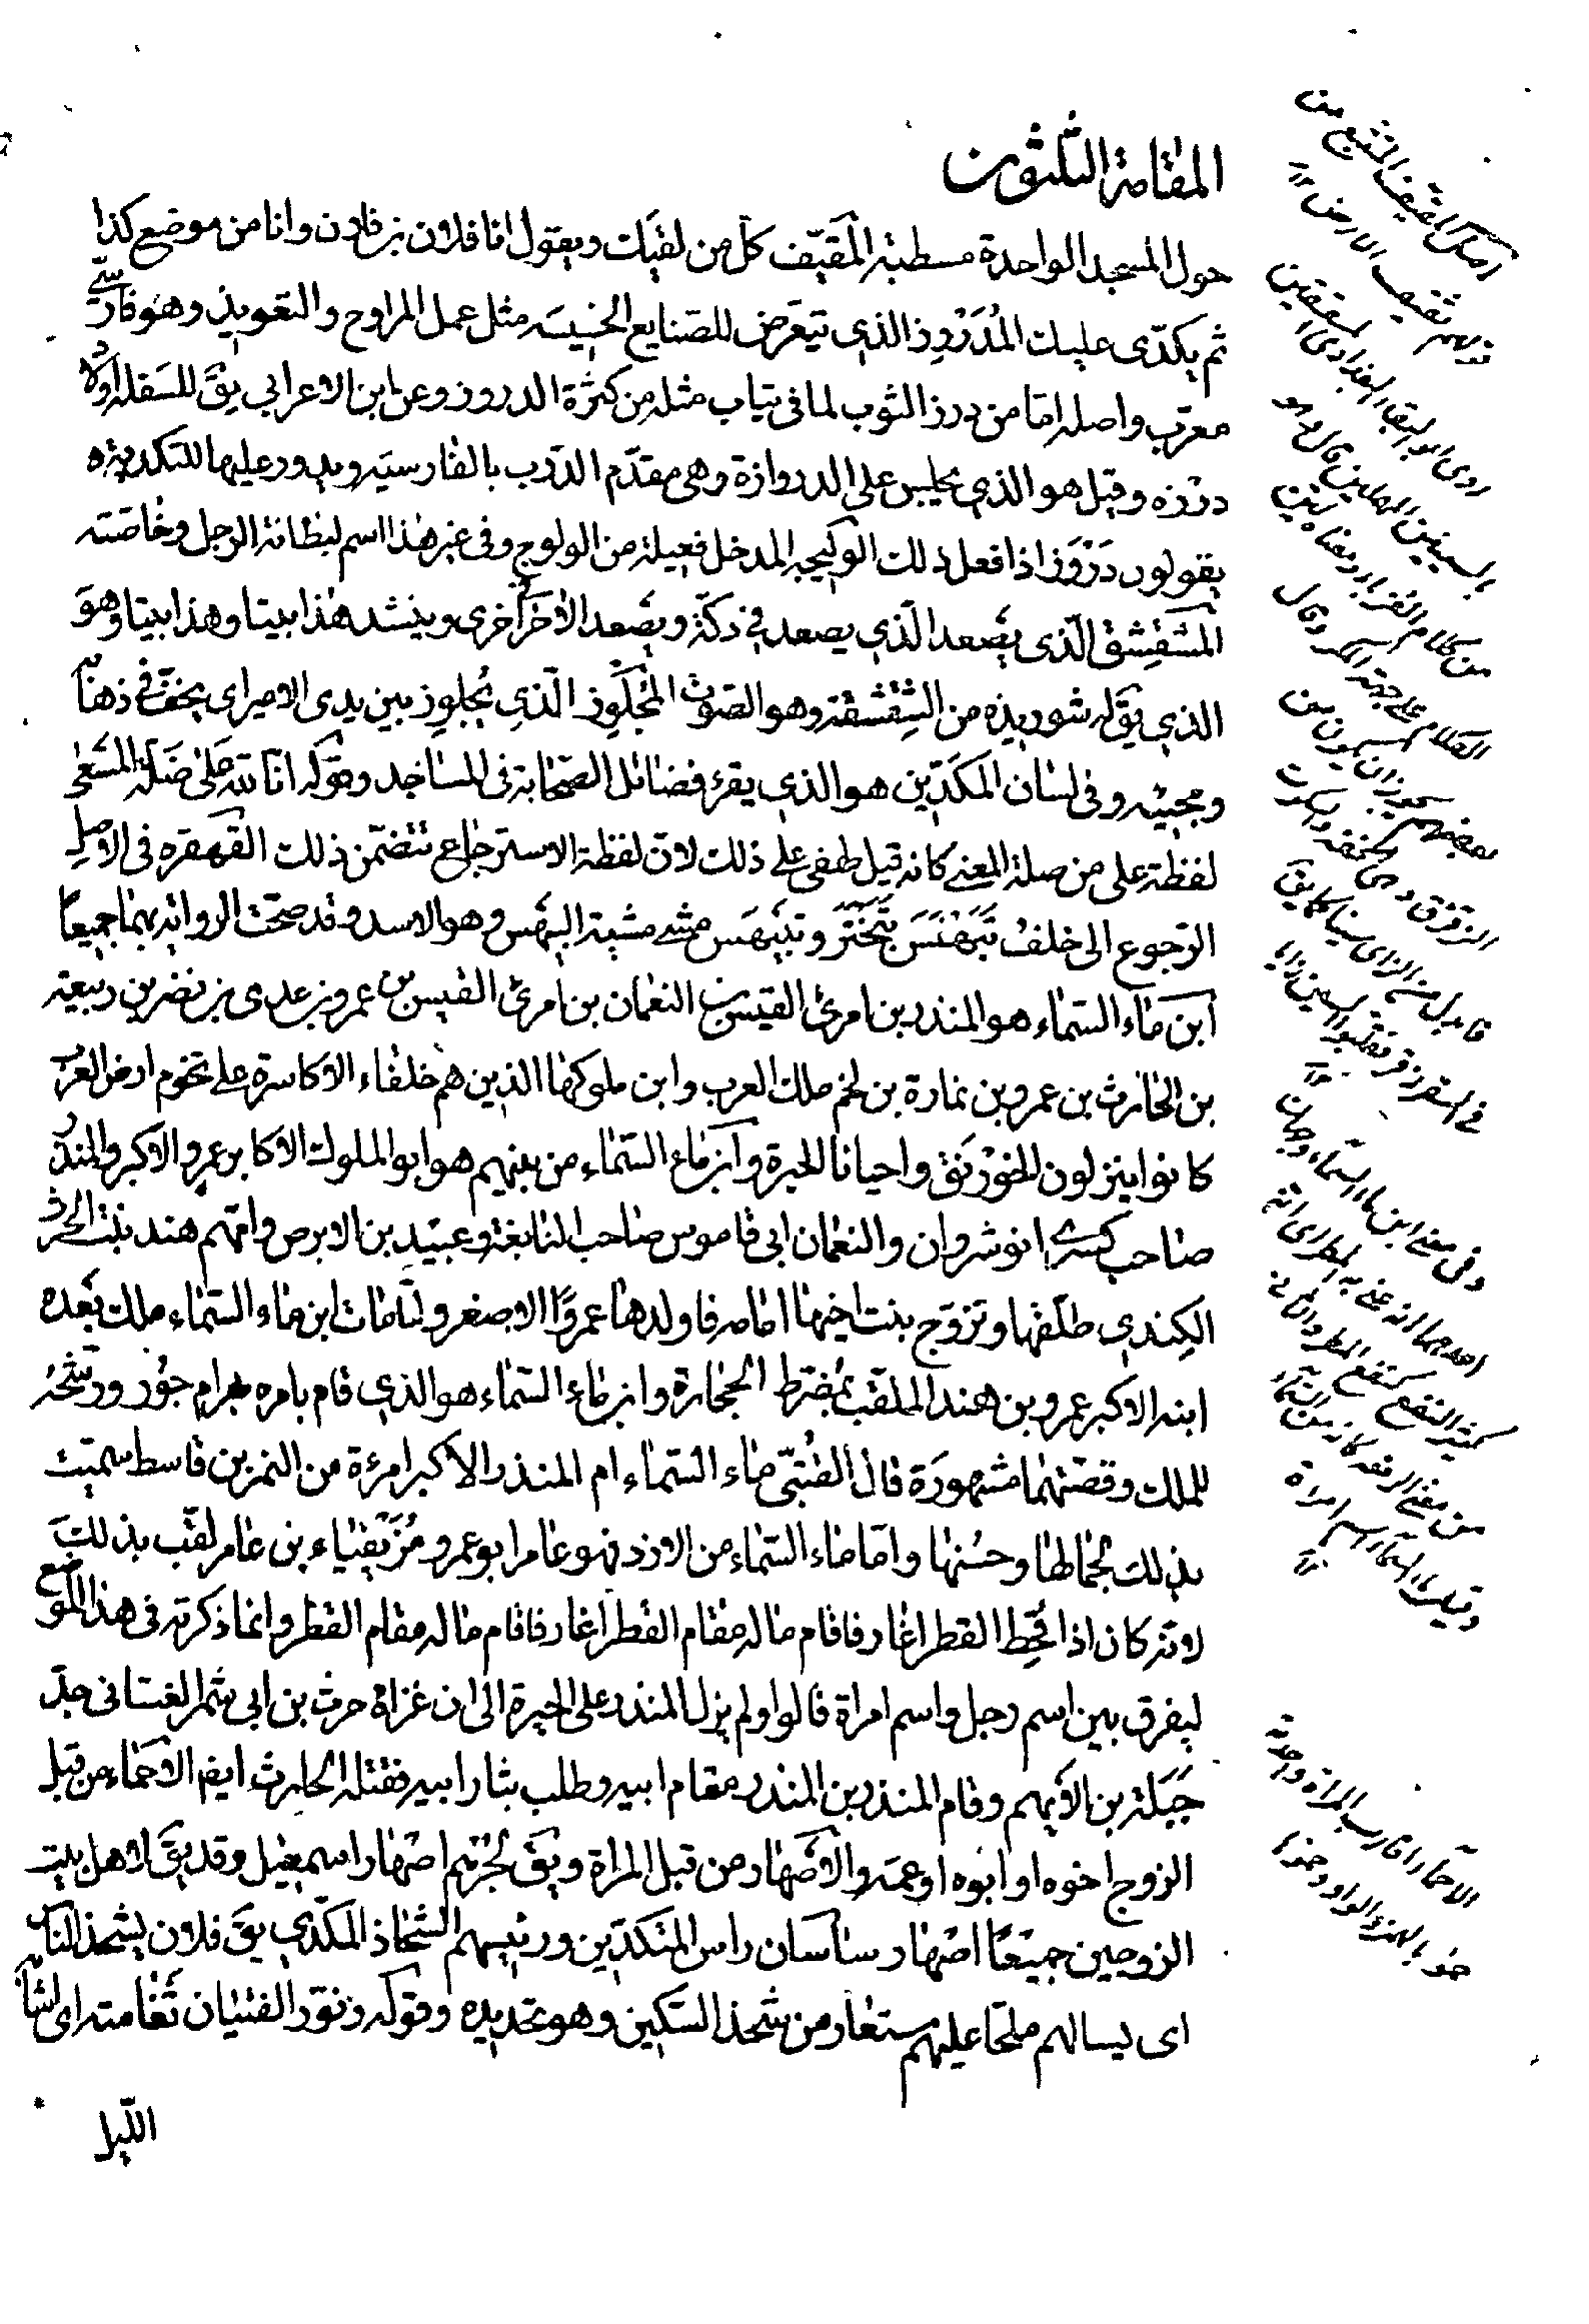 المقامة الثلثون
حول المسجد الواحدة مسطبة المقيّف كل من لقيك ويقول انا فلان بن فلان وانا من موضع كذا
ثم يكدّى عليك المُدَرْوِز الذي يتعرض للصنايع الخسيسة مثل عمل المراوح والتعويذ وهو فارسيّ
معرّب واصله امّا من درز الثوب لما فى ثياب مثله من كثرة الدروز وعن ابن الاعرابي يقَ للسفلة اولاد
درْزه وقيل هو الذي يجلس على الدروازة وهى مقدّم الدرب بالفارسية ويدور عليها للتكدية
يقولون دَرْوَز اذا فعل ذلك الوليجة المدخل فعيلة من الولوج وفى غير هذا اسم لبطانة الرجل وخاصّته
المشقشق الّذى يصعد الّذي يصعد في دكّة ويصعد الآخر اخرى وينشد هذا بيتا وهذا بيتا وهوَ
الذي يقَ له شوريده من الشِقشقة وهو الصّوت المُجَلْوِز الّذي يُجلوِز بين يدى الامير اى يخفّ فى ذهابه
ومجيئه وفى لسان المكدّين هو الذي يقرء فضائل الصّحابة فى المساجد وقوله انّا لله على ضلّة المسعى
لفظة على من صلة المعنى كانه قيل طفى على ذلك لانّ لفظة الاسترجاع تتضمّن ذلك القهقرة فى الاصل
الرّجوع الى خلف تَبَهْنَسَ تبَخْتَرَ وتبَيْهَس مشى مشية البيهَس وهو الاسد وقد صحّت الرواية بهما جميعاً
ابن ماء السّماء هو المنذر بن امرئ القيس بن النعمان بن امرئ القيس بن عمرو بن عدى بن نصر بن ربيعة
بن الحارث بن عمرو بن نمارة بن لخم ملك العرب وابن ملوكها الذين هم خلفاء الاكاسرة على تخوم ارض العرب
كانوا ينزلون الخوَرْنَق واحيانا الحيرة وابن ماء السّماء من بينهم هو ابو الملوك الاكابر عمرو الاكبر والمنذر
صاحب كسرى انوشروان والنعمان ابى قاموس صاحب النابغة وعبيد بن الابرص وامّهم هند بنت الحرث
الكِندي طلّقها وتزوّج بنت اخيها امامه فاولدها عمروًا الاصغر ولمّا مات ابن ماء السّماء ملك بعده
ابنه الاكبر عمرو بن هند الملقّب بمُضرّط الحجارة وابن ماء السّماء هو الذي قام بامره بهرام جوُر ورشّحه
للملك وقصّتهما مشهورة قال القُتَبيّ ماء السّماء ام المنذر الاكبر امرءة من النمر بن قاسط سمّيت
بذلك لجمالها وحسنها وامّا ماء السّماء من الازد فهو عامر ابو عمرو مُزَيْقِياء بن عامر لقّب بذلك
لانّه كان اذا قُحِط القطر اغار فاقام ماله مقام القطر اغار فاقام ماله مقام القطر وانما ذكرته فى هذا الموضع
ليفرق بين اسم رجل واسم امراة قالوا ولم يزل المنذر على الحيرة الى ان غزاه حرث بن ابى شمر الغسّانى جدّ
جَبَلة بن الأيهم وقام المنذر بن المنذر مقام ابيه وطلب بثار ابيه فقتله الحارث ايضا الاحماء من قبل
الزوج اخوه او ابوه او عمّه والاصهار من قبل المراة ويقَ لجُرْهم اصهار اسمعيل وقد يقَ لاهل بيت
الزوجين جميعًا اصهار ساسان راس المتكدّين ورئيسهم الشحّاذ المكدّي يقَ فلان يشحذ الناس
اى يسالهم ملحّا عليهم مستعار من شحذ السّكين وهو تحديده وقوله ونوّر الفتيان ثغامته اى لشابّ
الليل
وفى معنى ابن ماء السّماء وجهان
احدهما انه عنى به المطر اى انه
كثير النفع كنفع المطر
وقيل ماء السماء اسم امراة
الاحماء اقارب المراة واحدة